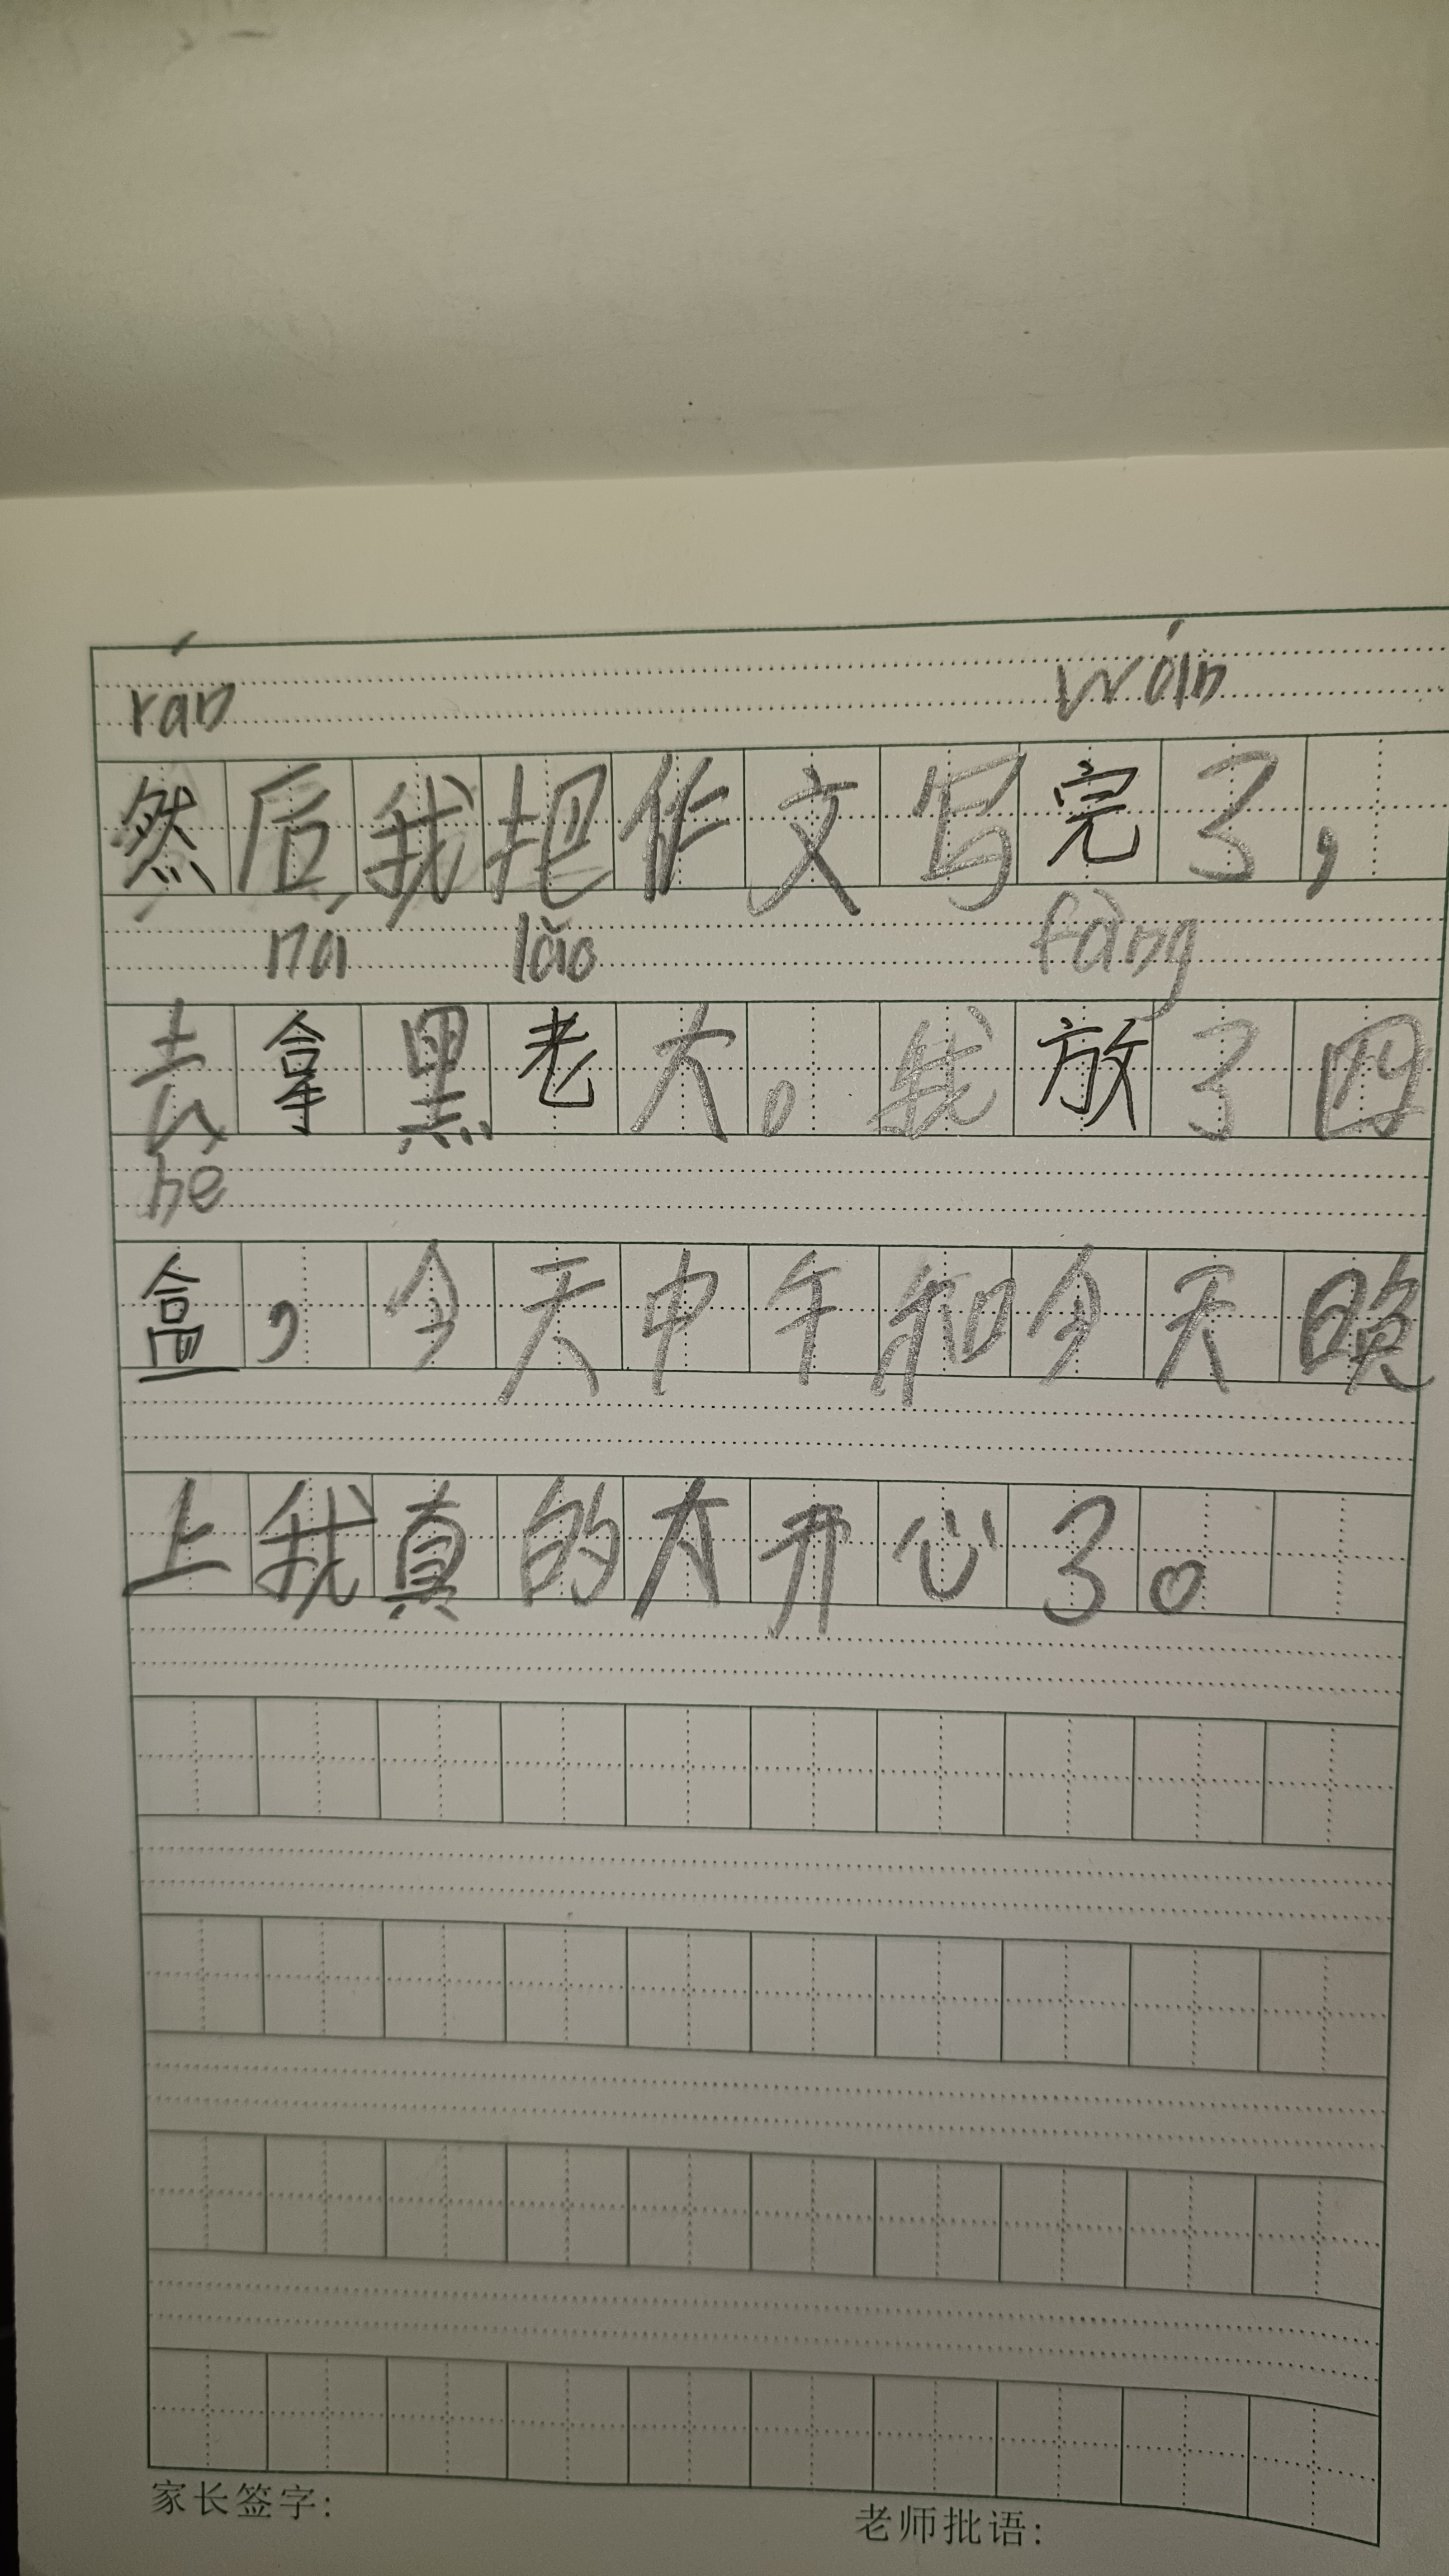 rán wán
然后我把作文写完了，
ná lǎo fàng
去拿黑老大。我放了四
he
盒，今天中午和今天晚
上我真的大开心了。
家长签字： 老师批语：